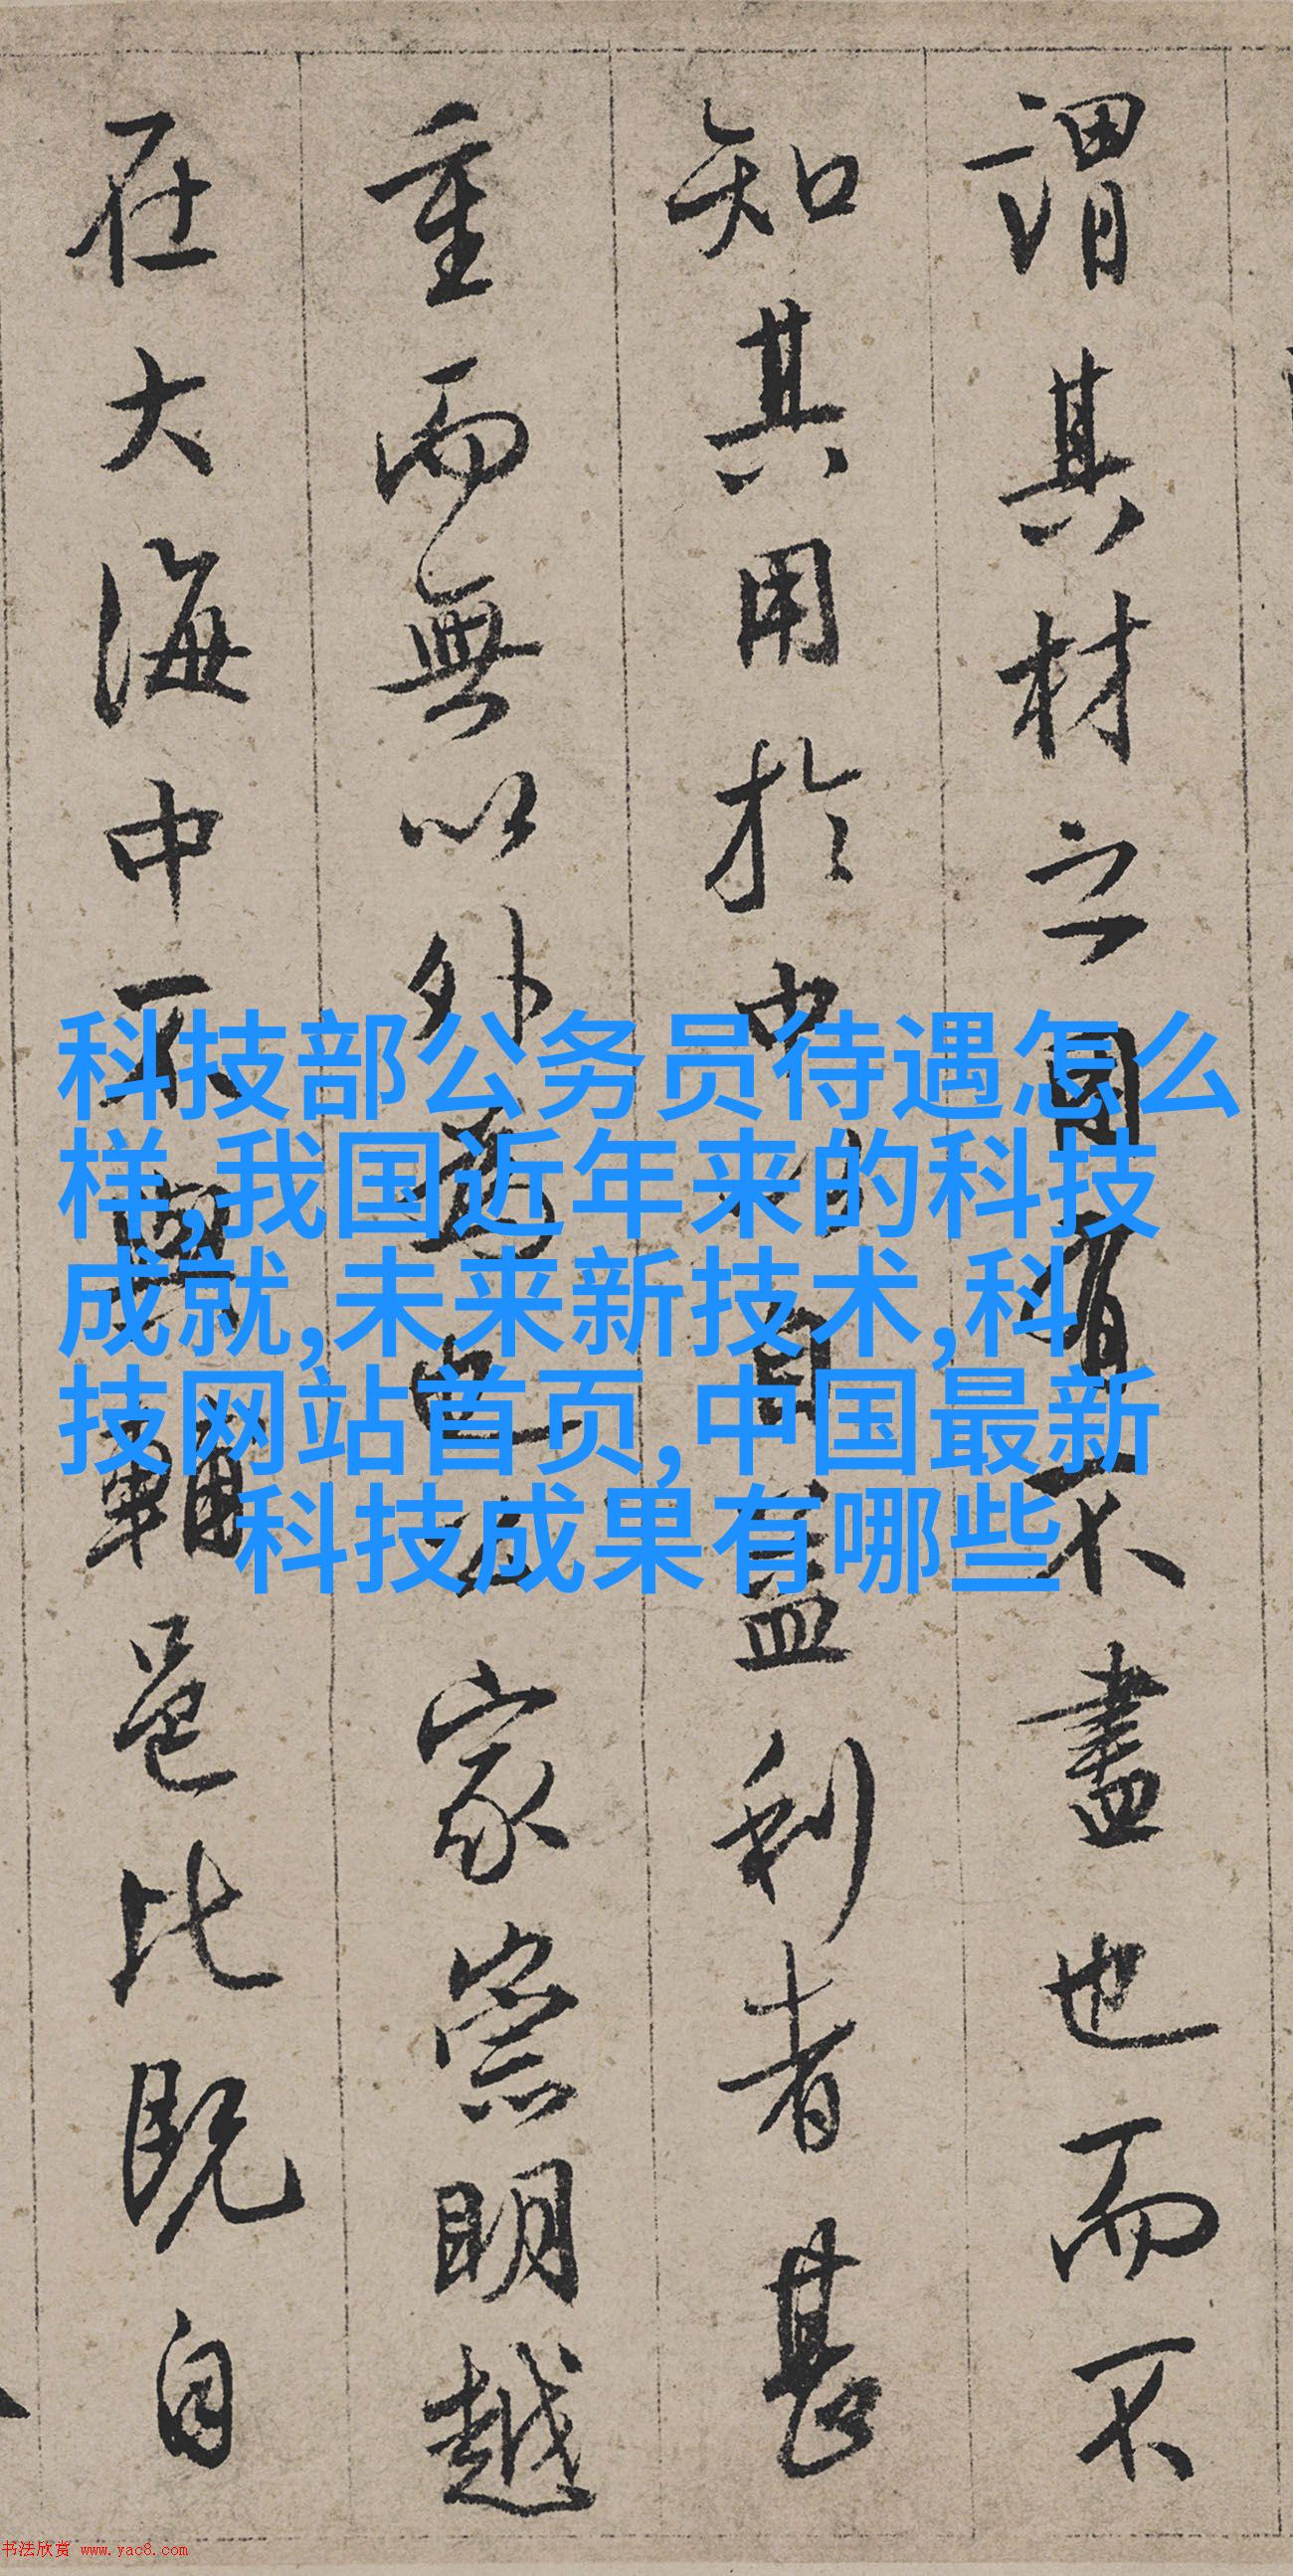 謂其材之固有不盡也而不
知其用於中以自益利者甚
重而無以外為也家崇明越
在大海中不與輔邑比既自
科技部公务员待遇怎么
样,我国近年来的科技
成就,未来新技术,科
技网站首页,中国最新
科技成果有哪些
书法欣赏 www.yac8.com